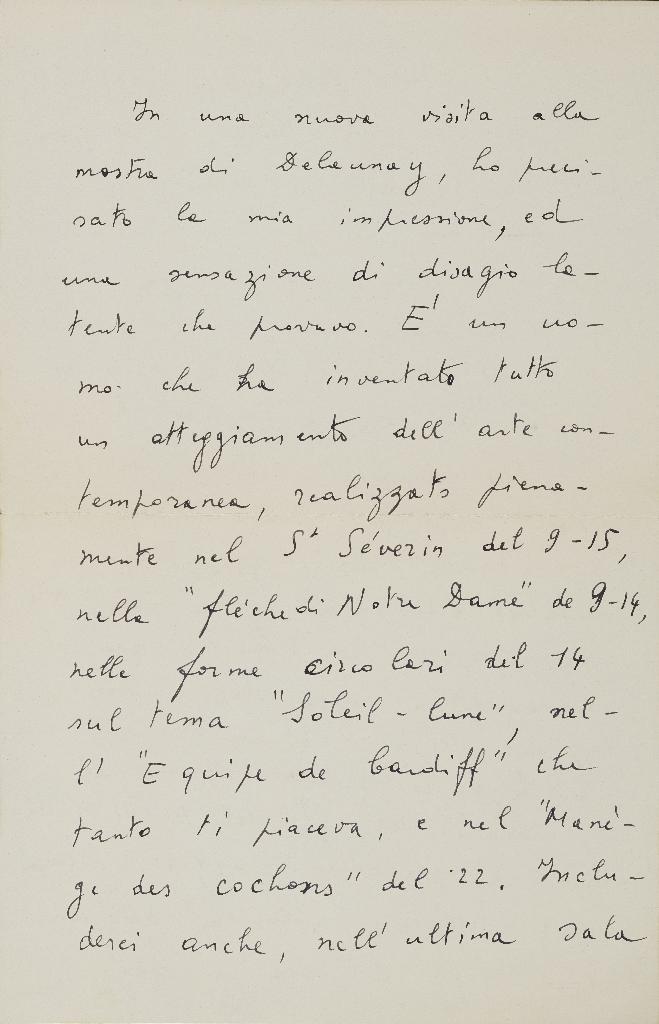 In una nuova visita alla
mostra di Delaunay, ho preci-
sato la mia impressione, ed
una sensazione di disagio la-
tente che provavo. E' un uo-
mo che ha inventato tutto
un atteggiamento dell'arte con-
temporanea, realizzato piena-
mente nel St Séverin del 9-15,
nella "flèche di Notre Dame" de 9-14,
nelle forme circolari del 14
sul tema "Soleil - lune", nel-
l' "Equipe de Cardiff" che
tanto ti piaceva, e nel "Manè-
ge des cochons" del '22. Inclu-
derei anche, nell'ultima sala